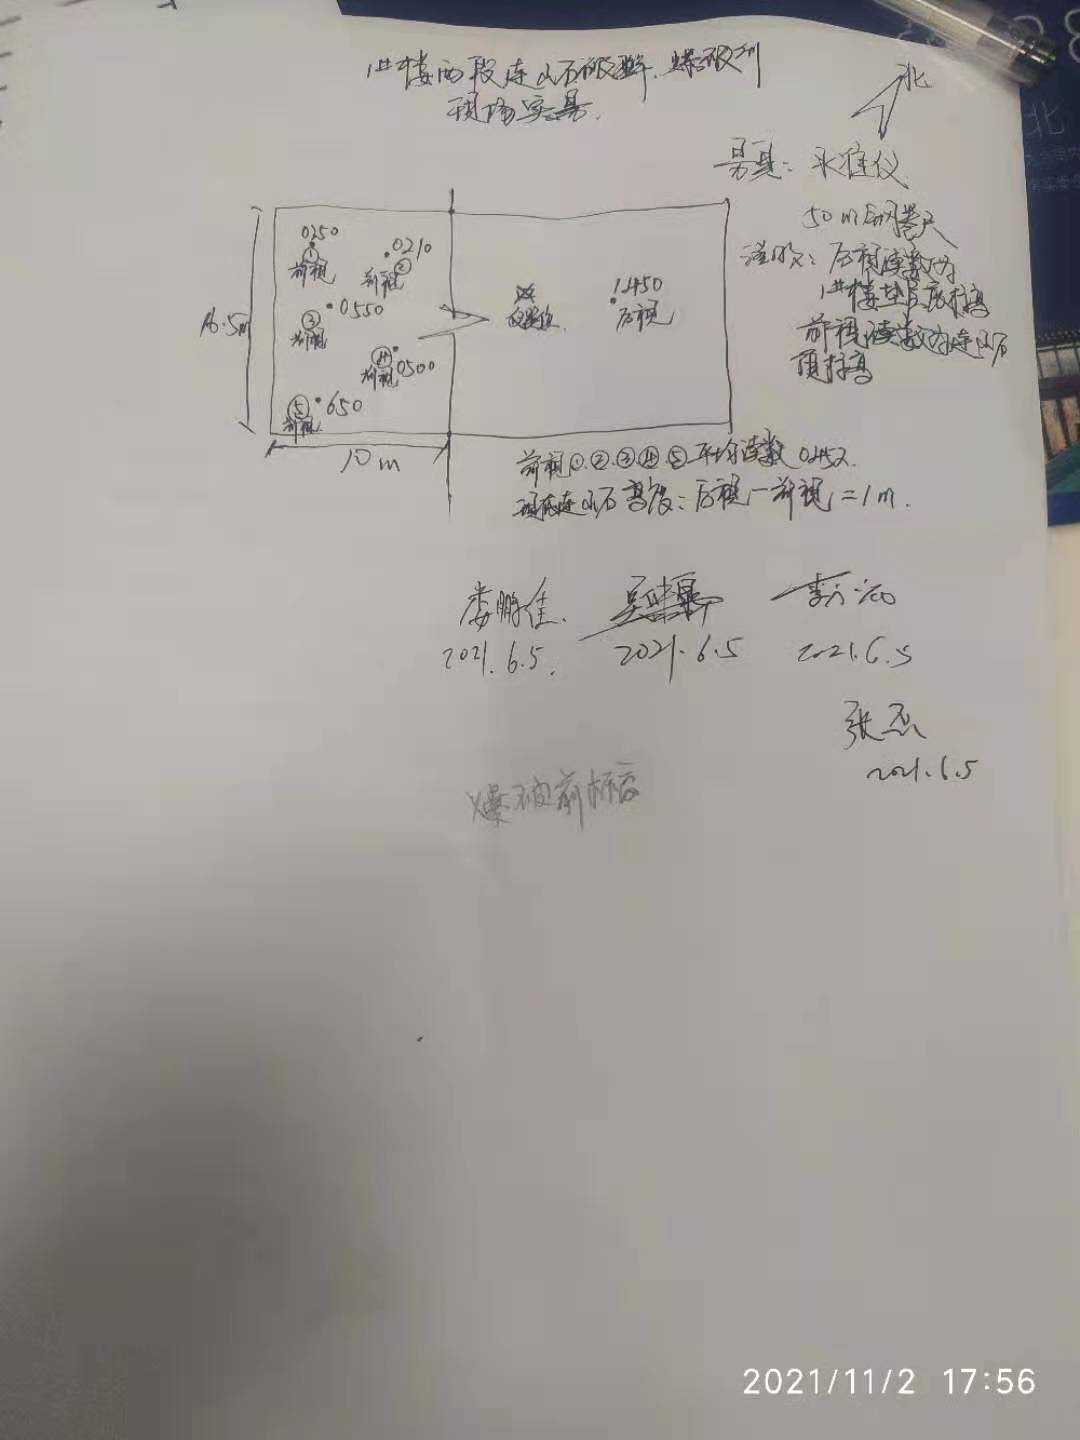 1#楼西段连山石破碎.爆破到
现场实量.
北
量具：水准仪
50m钢卷尺
说明：后视读数为
1#楼垫层底标高
前视读数为连山石
顶标高
0250
①
前视
0210
②
前视
③
0550
前视
④
前视
0500
⑤
650
前视
16.5m
10m
仪器位
1.450
后视
前视①.②.③.④.⑤平均读数 0452.
连山石高度：后视一前视=1m.
娄鹏佳.
2021.6.5.
2021.6.5
2021.6.5
张杰
2021.6.5
爆破前标高
北
2021/11/2 17:56